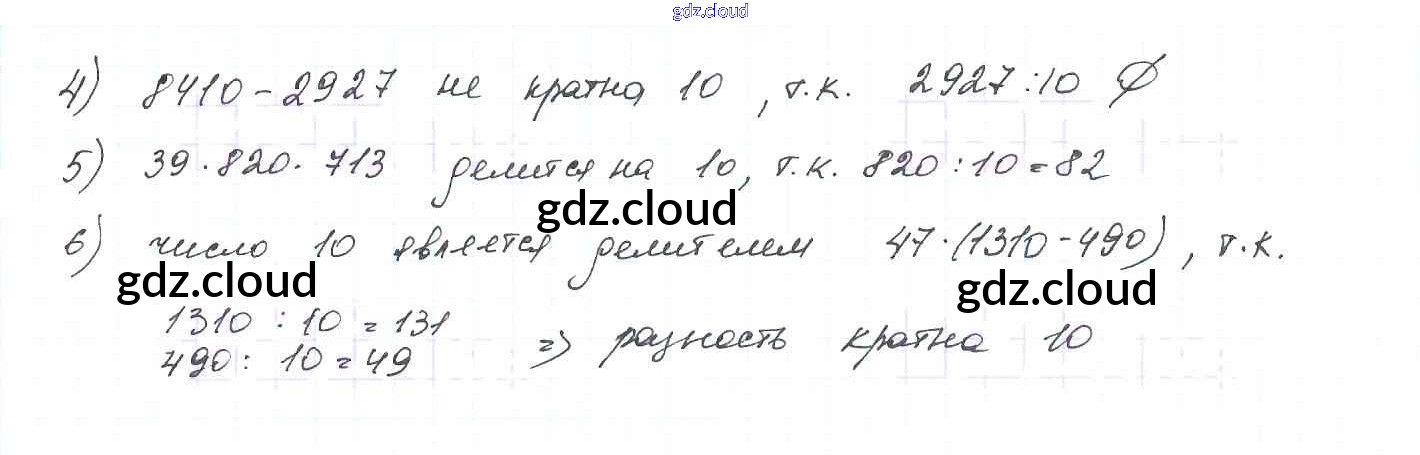 gdz.cloud
4) 8410-2927 не кратна 10, т.к. 2927:10 ∅
5) 39·820·713 делится на 10, т.к. 820:10=82
gdz.cloud
6) число 10 является делителем 47·(1310-490), т.к.
gdz.cloud gdz.cloud
1310 : 10 = 131
490 : 10 = 49 => разность кратна 10